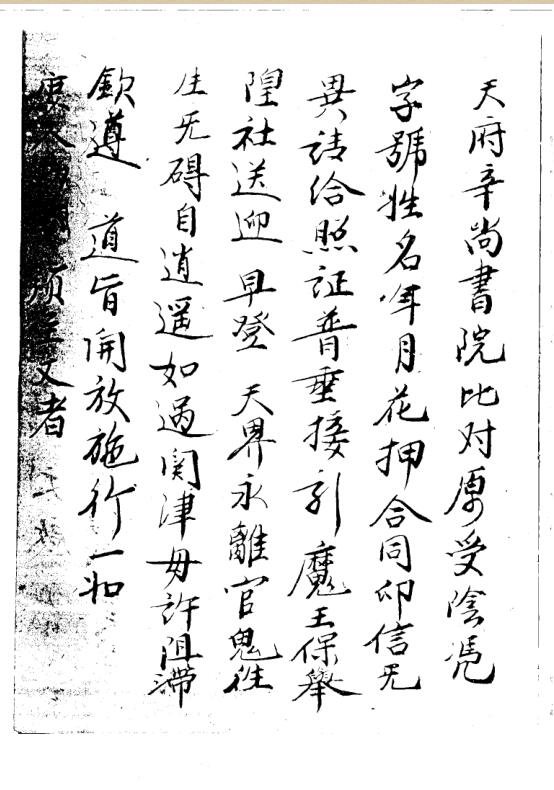 天府辛尚書院比对原受陰凭
字號姓名年月花押合同印信无
異請给照証普垂接引魔王保舉
隍社送迎早登天界永離官鬼徃
生无碍自逍遥如過関津毋許阻滞
欽遵道旨開放施行一如
須至文者